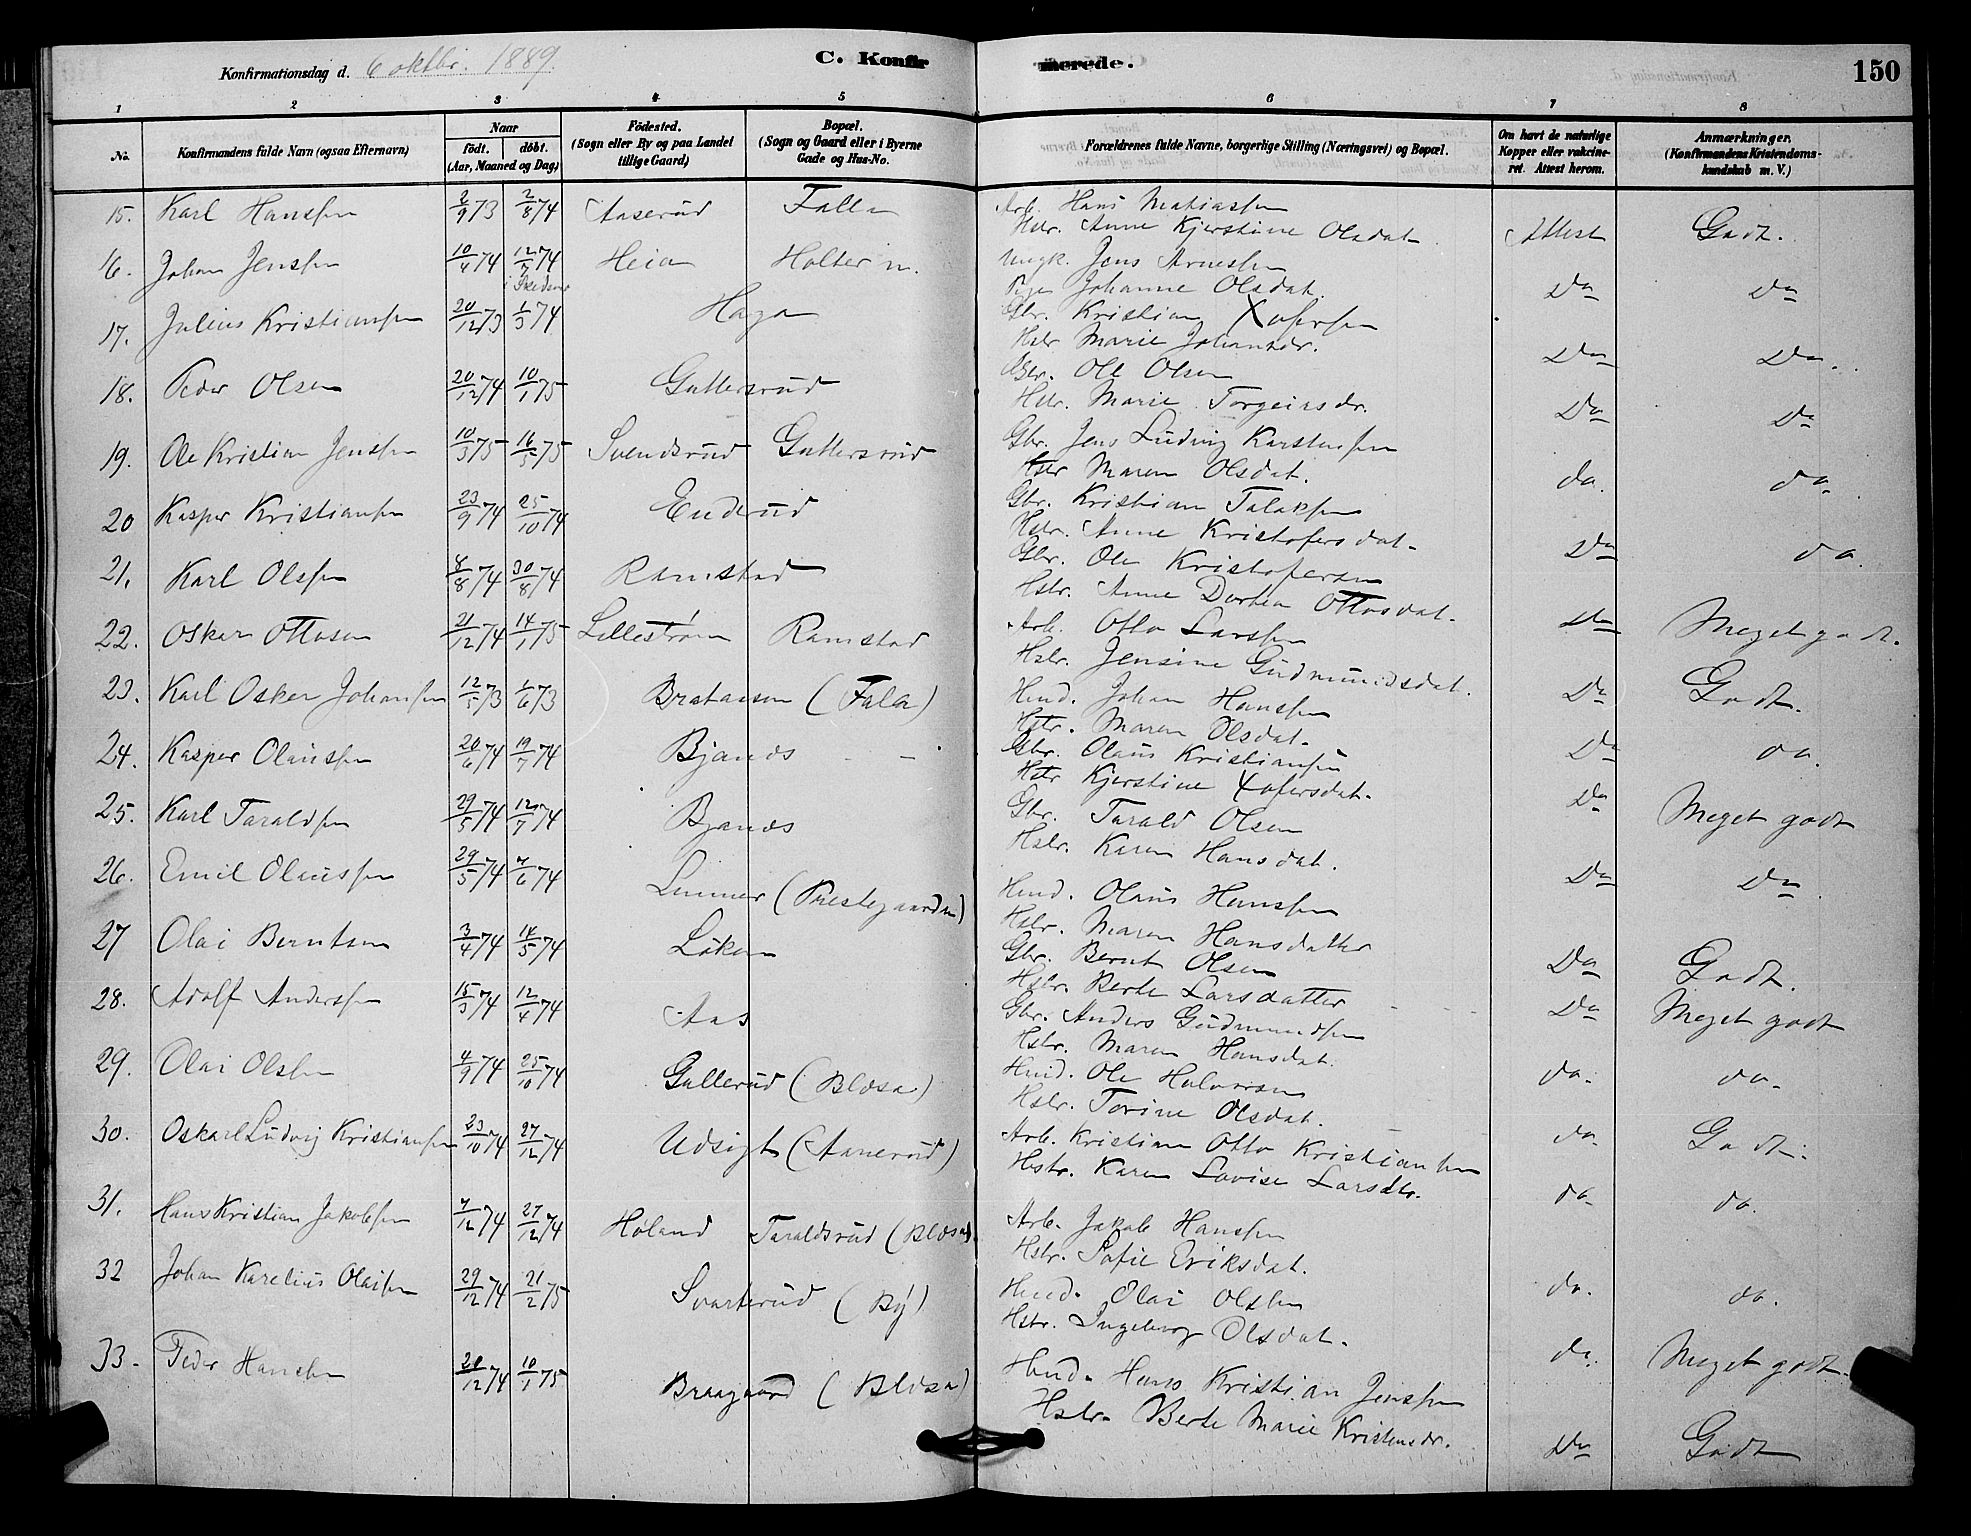 Konfirmationsdag d. 6 oktbr. 1889.
C. Konfirmerede.
150
1 2 3 4 5 6 7 8
No. Konfirmandens fulde Navn (ogsaa Efternavn) Naar födt. döbt. (Aar, Maaned og Dag.) Födested. (Sogn eller By og paa Landet tillige Gaard) Bopæl. (Sogn og Gaard eller i Byerne Gade og Hus-No. Forældrenes fulde Navne, borgerlige Stilling (Næringsvei) og Bopæl. Om havt de naturlige Kopper eller vakcineret. Attest herom. Anmærkninger. (Konfirmandens Kristendomskundskab m. V.)
15. Karl Hanssen 73 2/8 74 Aaserud Falla Arb. Hans Matiassen
Hstr. Anne Kjerstine Olsdat. Attest Godt.
16. Johan Jenssen 10/4 74 12/7 74 Heia Holter m. Ungk. Jens Arnessen
i Skedsmo
Pige Johanne Olsdat. Do Do
17. Julius Kristiansen 20/12 73 1/3 74 Haga Gbr. Kristian Xofersen
Hstr Marie Johansdr. Do Do.
18. Peder Olsen 20/12 74 10/1 75 Guttersrud Gbr. Ole Olsen
Hstr. Marie Torgeirsdr. Do Do
19. Ole Kristian Jenssen 10/3 75 16/5 75 Svendsrud Guttersrud Gbr. Jens Ludvig Karstensen
Hstr Maren Olsdat. do. do.
20 Kasper Kristiansen 23/9 74 25/10 74 Enderud Gbr. Kristian Talaksen
Hstr. Anne Kristofersdat. Do do.
21. Karl Olssen 8/8 74 30/8 74 Ramstad Gbr. Ole Kristofersen
Hstr. Anne Dorthea Ottosdat. Do Meget godt.
22. Oskar Ottosen 21/12 74 14/1 75 Lillestrøm Ramstad Arb. Otto Larssen
Hstr. Jensine Gudmundsdat. Do Godt.
23. Karl Oskar Johansen 12/5 73 1/6 73 (Fala) Hmd. Johan Hanssen
Hstr. Maren Olsdat. Do do.
24. Kasper Olaussen 20/6 74 19/7 74 Bjanes Gbr. Olaus Kristiansen
Hstr Kjerstine Xofersdat. Do Meget godt
25. Karl Taraldsen 29/5 74 12/7 74 Bjanes Gbr. Tarald Olsen
Hstr. Karen Hansdat. Do Do.
26. Emil Olaussen 29/5 74 7/6 74 (Prestegaarden) Hmd. Olaus Hanssen
Hstr. Maren Hansdatter Do Godt.
27 Olai Berntsen 3/4 74 14/5 74 Løken Gbr. Bernt Olsen
Hstr. Berte Larsdatter Do Meget godt
28. Adolf Anderssen 15/3 74 12/4 74 Aas Gbr. Anders Gudmundsen
Hstr. Maren Hansdat. do. do.
29. Olai Olssen 4/9 74 25/10 74 Gullerud (Blæsa) Hmd. Ole Halvorsen
Hstr. Torine Olsdat. do. Godt.
30. Oskar Ludvig Kristiansen 23/10 74 27/12 74 Udsigt (Aanerud) Arb. Kristian Otto Kristiansen
Hstr. Karen Lovise Larsdtr. do do.
31. Hans Kristian Jakobsen 7/12 74 27/12 74 Høland Taraldsrud (Blæsa) Arb. Jakob Hanssen
Hstr. Sofie Eriksdat. do. do.
32 Johan Karelius Olaisen 29/12 74 21/2 75 Svarterud (By) Hmd. Olai Olssen
Hstr. Ingeborg Olsdat. do. Meget godt.
33. Peder Hanssen 20/12 74 10/1 75 Braagaard (Blæsa) Hmd. Hans Kristian Jenssen
Hstr. Berte Marie Kristensdr. Do Godt